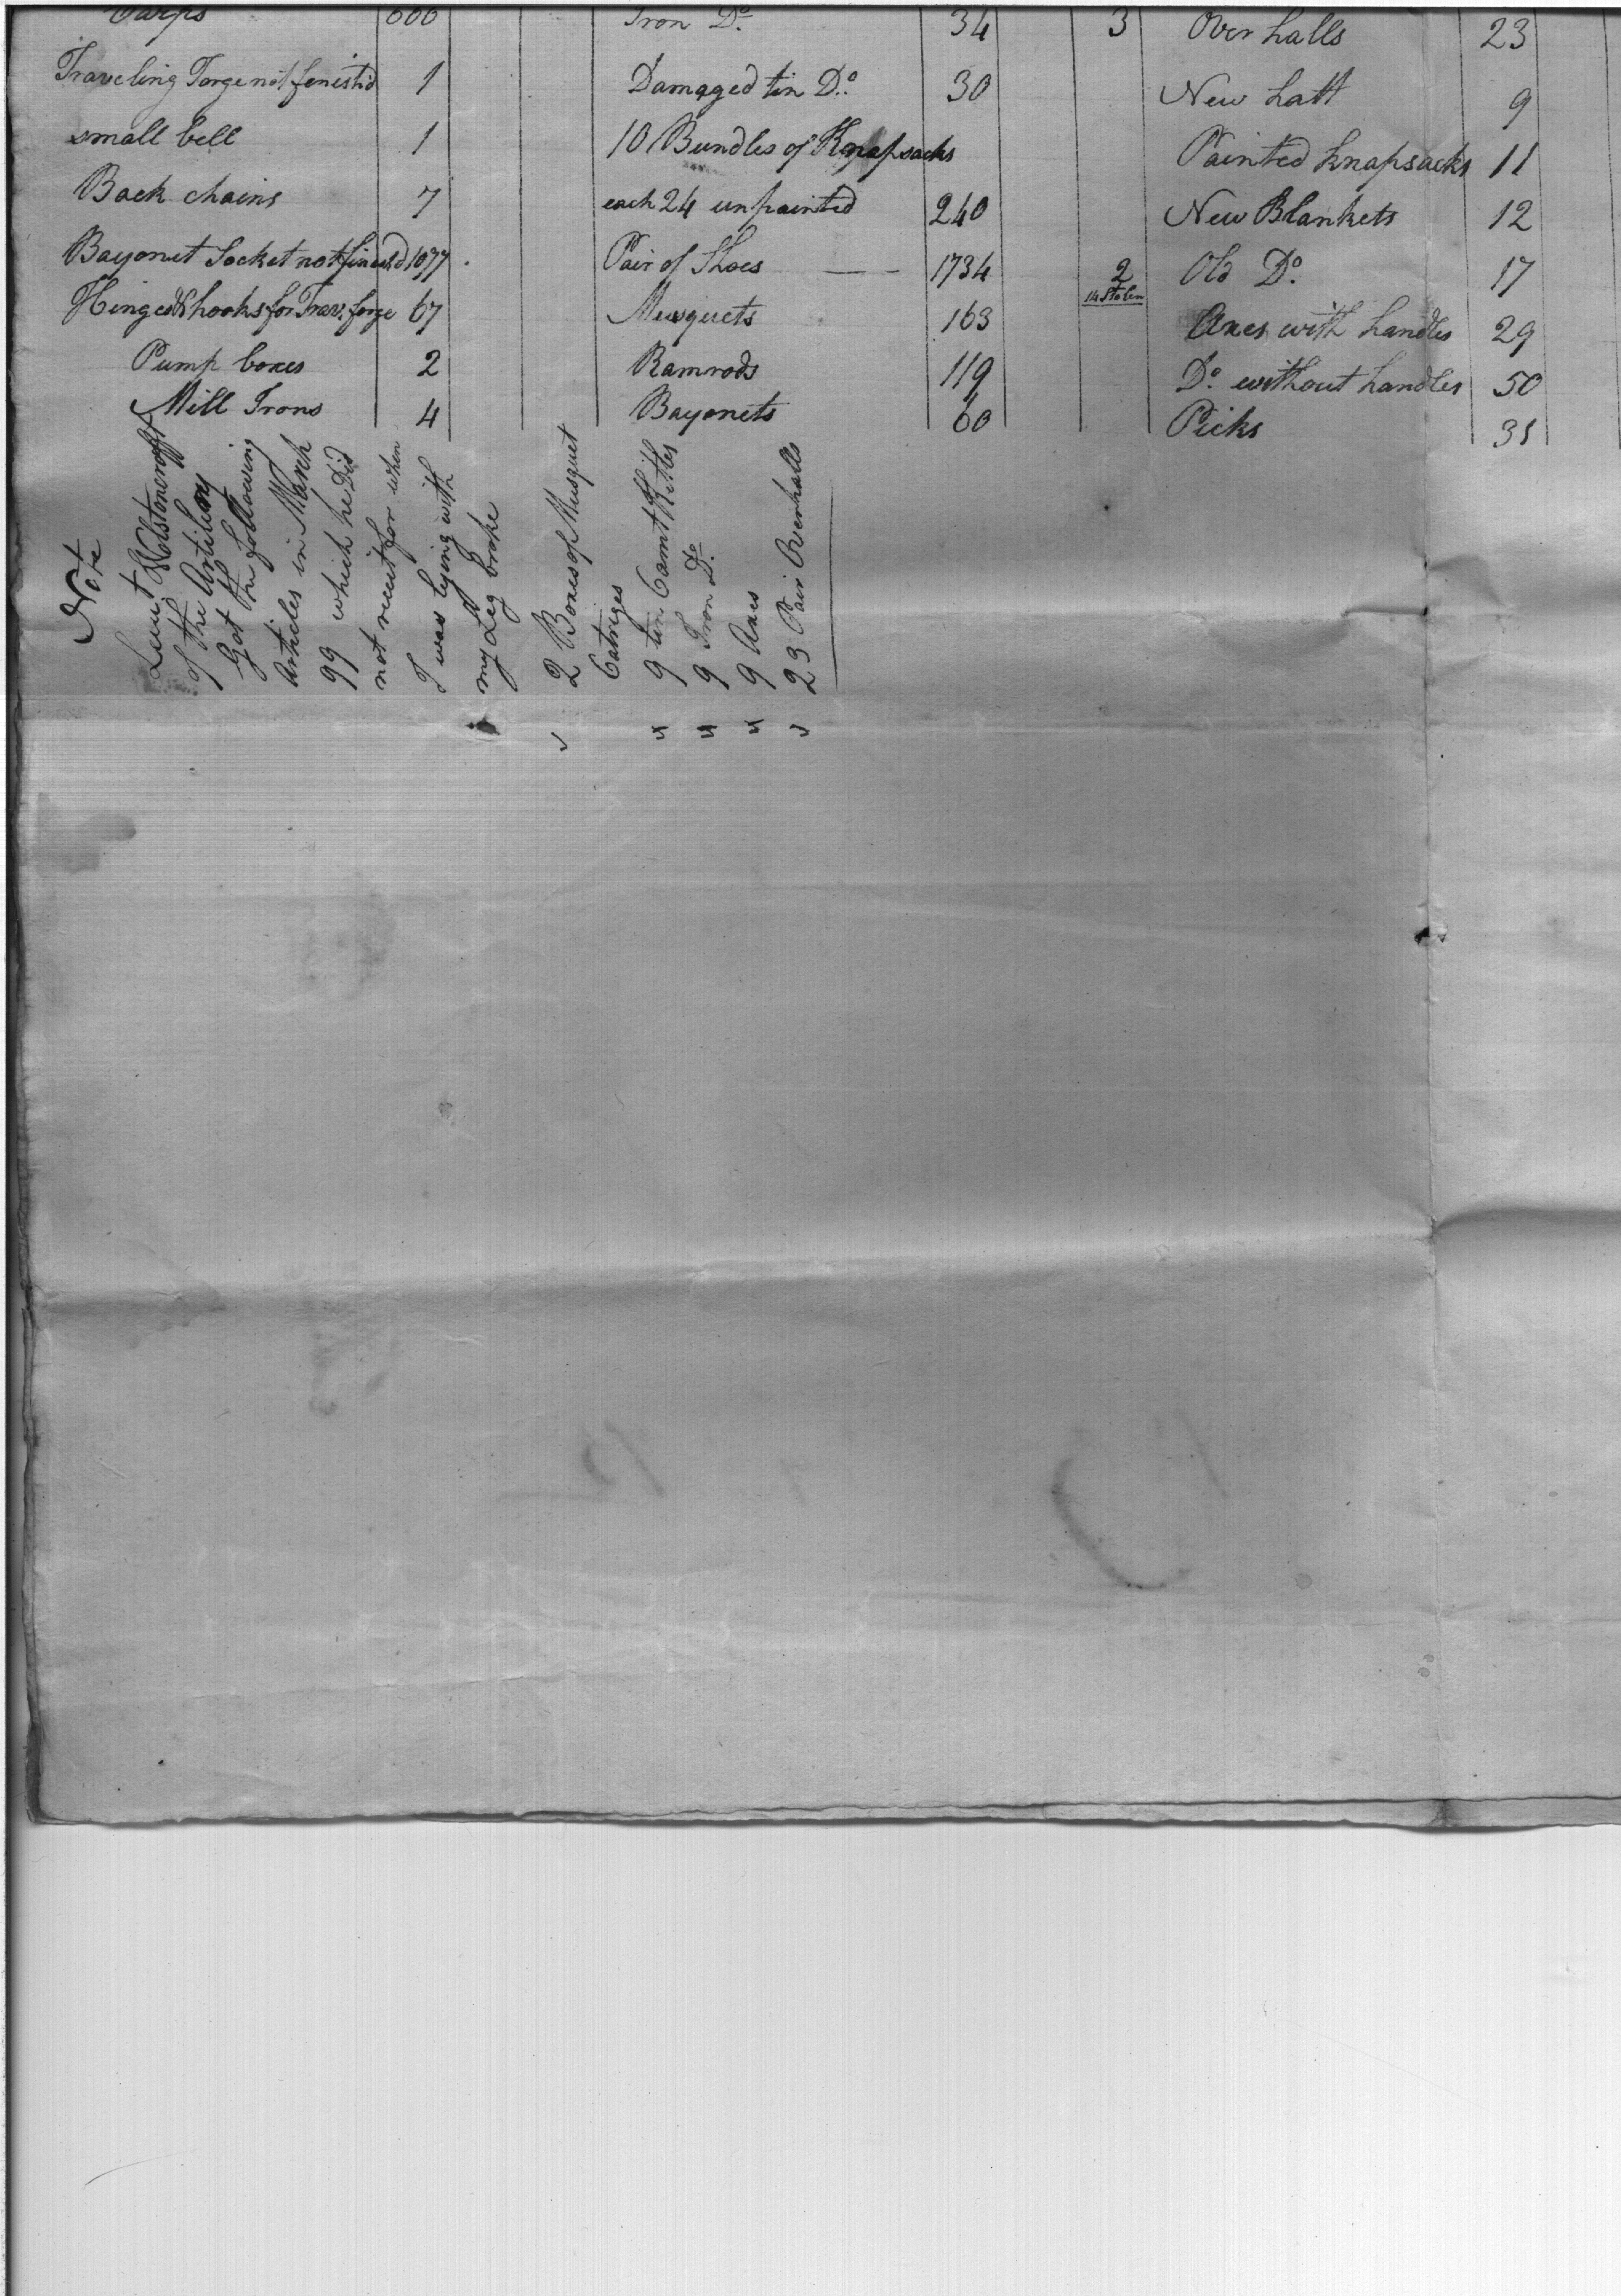 600
Traveling Forge not finestid 1
small bell 1
Back chains 7
Bayonet Socket not fineshd 1077
Hinges & hooks for Trav. forge 67
Pump boxes 2
Mill Irons 4
Iron Do. 34
Damaged tin Do. 30
10 Bundles of Knapsacks
each 24 unpainted 240
Pair of Shoes 1734
Musquets 163
Ramrods 119
Bayonets 60
3 Over halls 23
New hatt 9
Painted knapsacks 11
New Blankets 12
2 Old Do. 17
14 Stolen
Axes with handles 29
Do. without handles 50
Picks 31
Note
Lieut Wolstoncrofft
of the Artilleary
Got the following
Articles in March
99 which he Did
not receit for when
I was lying with
my Leg broke
2 Boxes of Musquet
Catriges
" 9 tin Camt Kitles
" 9 Iron Do.
" 9 Axes
" 23 Pair Overhalls